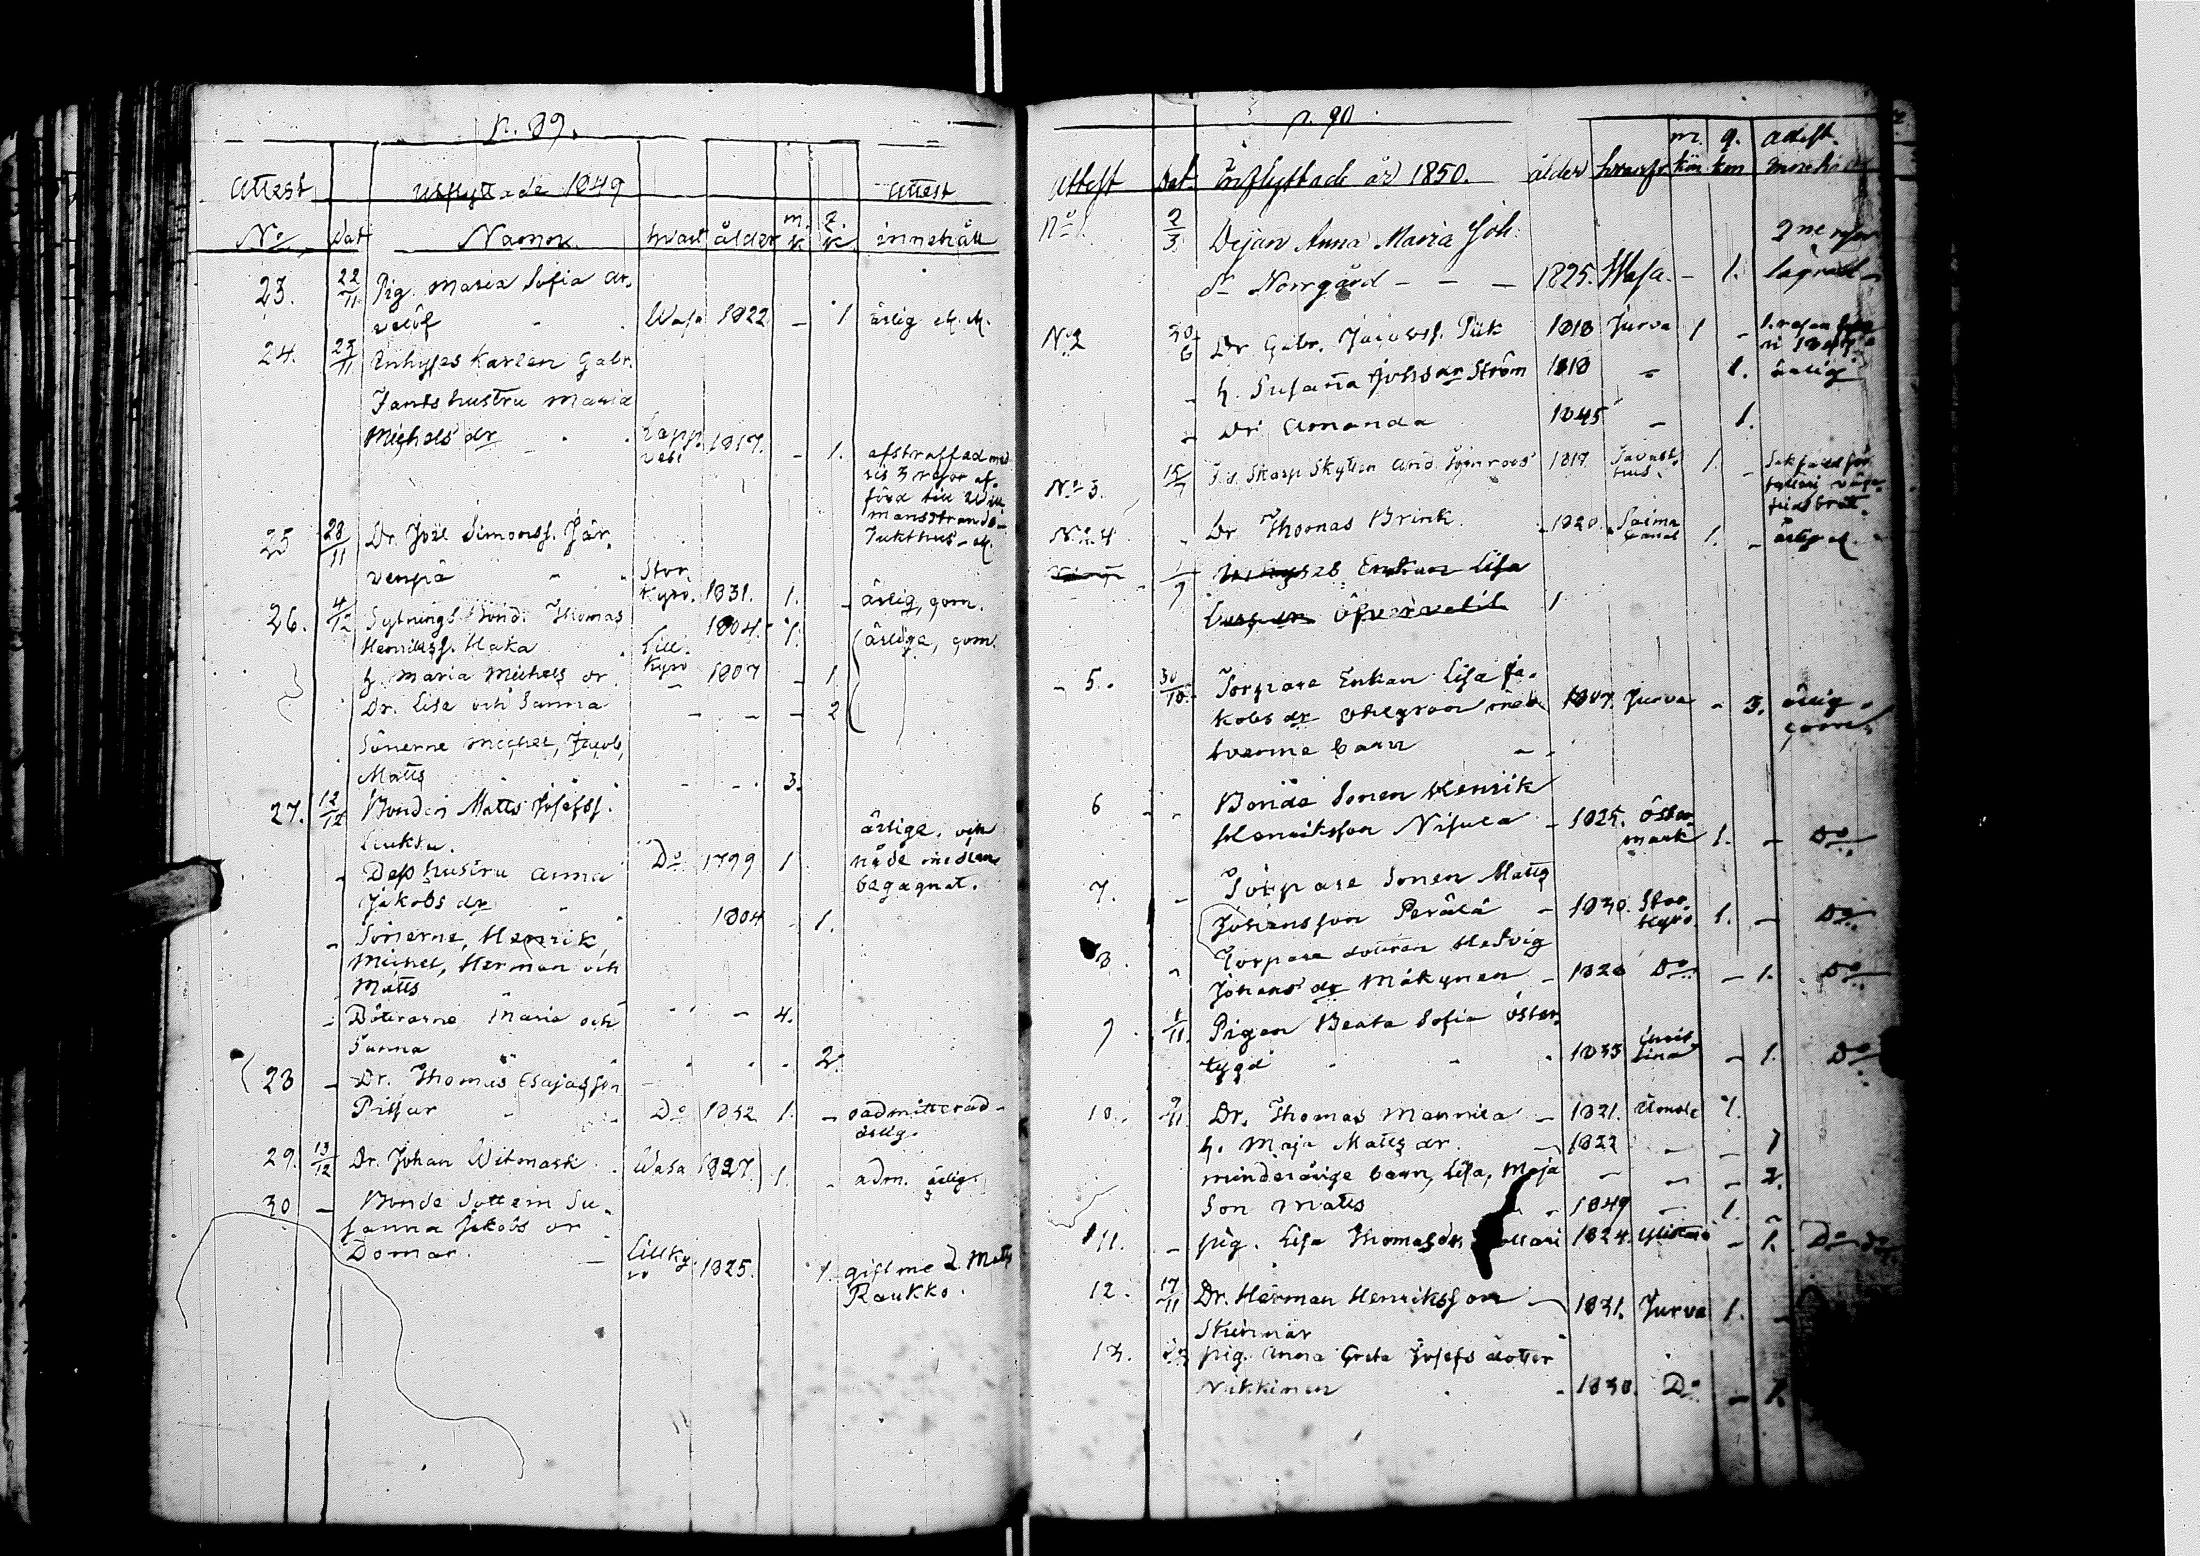 p. 89.
Attest Utflyttade 1849 Attest
No Dat Namn. hvart ålder m k q. k. innehåll
23. 22/11 Pig. Maria Sofia Ar-
velöf Wasa 1822 - 1 ärlig
24. 23/11 Inhyses Karlen Gabr.
hustru Maria
Michels dr Lapp-
vesi 1817. - 1. afstraffad med
ris 3 resor af-
förd till Will-
manstrands
25 28/11 Dr. Joel Simonss. Jär- Tukthus
venpä Stor
Kyro. 1831. 1. - ärlig, gom.
26. 4/12 Sytnings Bond. Thomas 1804. 1. ärliga, gom.
Henrikss. Haka Lill-
Kyro
h. Maria Michels dr - 1807 - 1
Dr. Lisa och Sanna - - - 2
Sönerne Michel, Jacob,
Matts - - . 3.
27. 12/12 Bonden Matts Josefss.
Luksu. Do 1799 1 ärliga, och
- Dess hustru Anna
Jakobs dr 1804 - 1. begagnat.
- Sönerne, Henrik,
Michel, Herman och
Matts
- Döttrarne Maria och - 4.
Sanna 2.
28 - Dr. Thomas Esajasson
Do 1832 1. - oadmitterad -
ärlig.
29. 13/12 Dr. Johan Witmark Wasa 1827. 1. - adm. ärlig.
30 - Bonde dottern Su-
sanna Jakobs dr
Domar. - Lillky-
ro 1825. 1. gift med Matts
Raukko.
p. 90
Attest Dat. Inflyttade år 1850. ålder hvarifr. m. kön q. kön attest
No 1. 2/3. Anna Maria Joh:
dr Norrgård - - - 1825. Wasa. - 1.
No 2 30/6 Dr Gabr. Jacobss. Piik 1818 Jurva 1 -
- h. Susanna Johs dr Ström 1818 - 1. ärlig
- Dr: Amanda 1845 - 1.
No 3. 15/7 Skarp Skytten And. 1817 Tavast-
hus. 1. -
No 4 - Dr Thomas Brink. - 1820. Saima
Canal 1. - ärlig
1/9 Inhyses Enkan Lisa
- 5. 30/10. Torpare Enkan Lisa Ja-
kobs dr Ohlgron med 1807. Jurva - 3. ärlig
tvenne barn
6 - - Bonde Sonen Henrik
Henriksson Nisula - 1825. Öster-
mark 1. - Do
7. - Torpare Sonen Matts
Johansson Perälä - 1830. Stor-
kyro. 1. - Do
8. - Torpare dottren Hedvig
Johans dr Mäkynen - 1828 Do - 1. Do
9. 1/11 Pigan Beata Sofia Öster-
tygd 1833 Christ-
tina - 1. Do
10. 9/11 Dr. Thomas Mannila - 1821. 1.
h. Maja Matts dr. - 1822 - - 1
minderårige barn, Lisa, Maja - - - 2.
Son Matts - 1849 - 1.
11. - pig. Lisa Thomasdr. 1824. - 1. Do
12. 17/11 Dr. Herman Henriksson - 1831. Jurva 1. -
Skinnar
13. pig. Anna Greta Josefs dotter
Nikkinen - 1830. Do - 1.